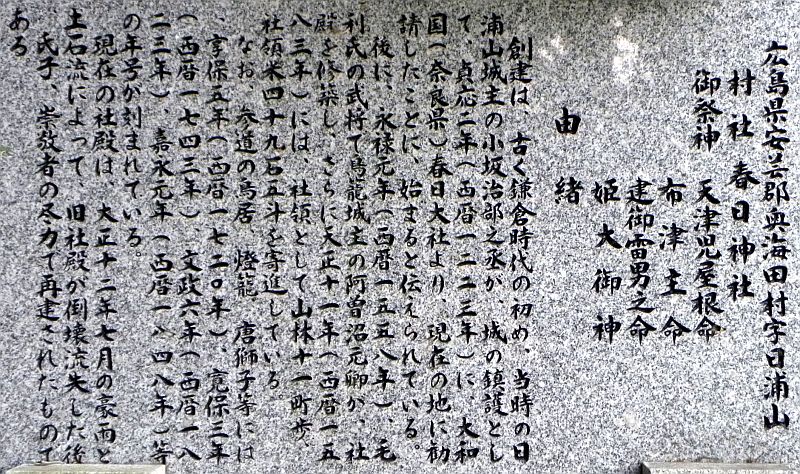 広島県安芸郡奥海田村字日浦山
村社 春日神社
御祭神 天津児屋根命
布津主命
建御雷男之命
姫大御神
由緒
創建は、古く鎌倉時代の初め、当時の日
浦山城主の小坂治部之丞が、城の鎮護とし
て、貞応二年(西暦一二二三年)に、大和
国(奈良県)春日大社より、現在の地に勧
請したことに、始まると伝えられている。
後に、永禄元年(西暦一五五八年)、毛
利氏の武将で鳥籠城主の阿曽沼元卿が、社
殿を修築し、さらに天正十一年(西暦一五
八三年)には、社領として山林十一町歩、
社領米四十九石五斗を寄進している。
なお、参道の鳥居 燈籠 唐獅子等には
、享保五年(西暦一七二〇年)、寛保三年
(西暦一七四三年)、文政六年(西暦一八
二三年)、嘉永元年(西暦一八四八年)等
の年号が刻まれている。
現在の社殿は、大正十二年七月の豪雨と
土石流によって、旧社殿が倒壊流失した後
、氏子、崇敬者の尽力で再建されたもので
ある